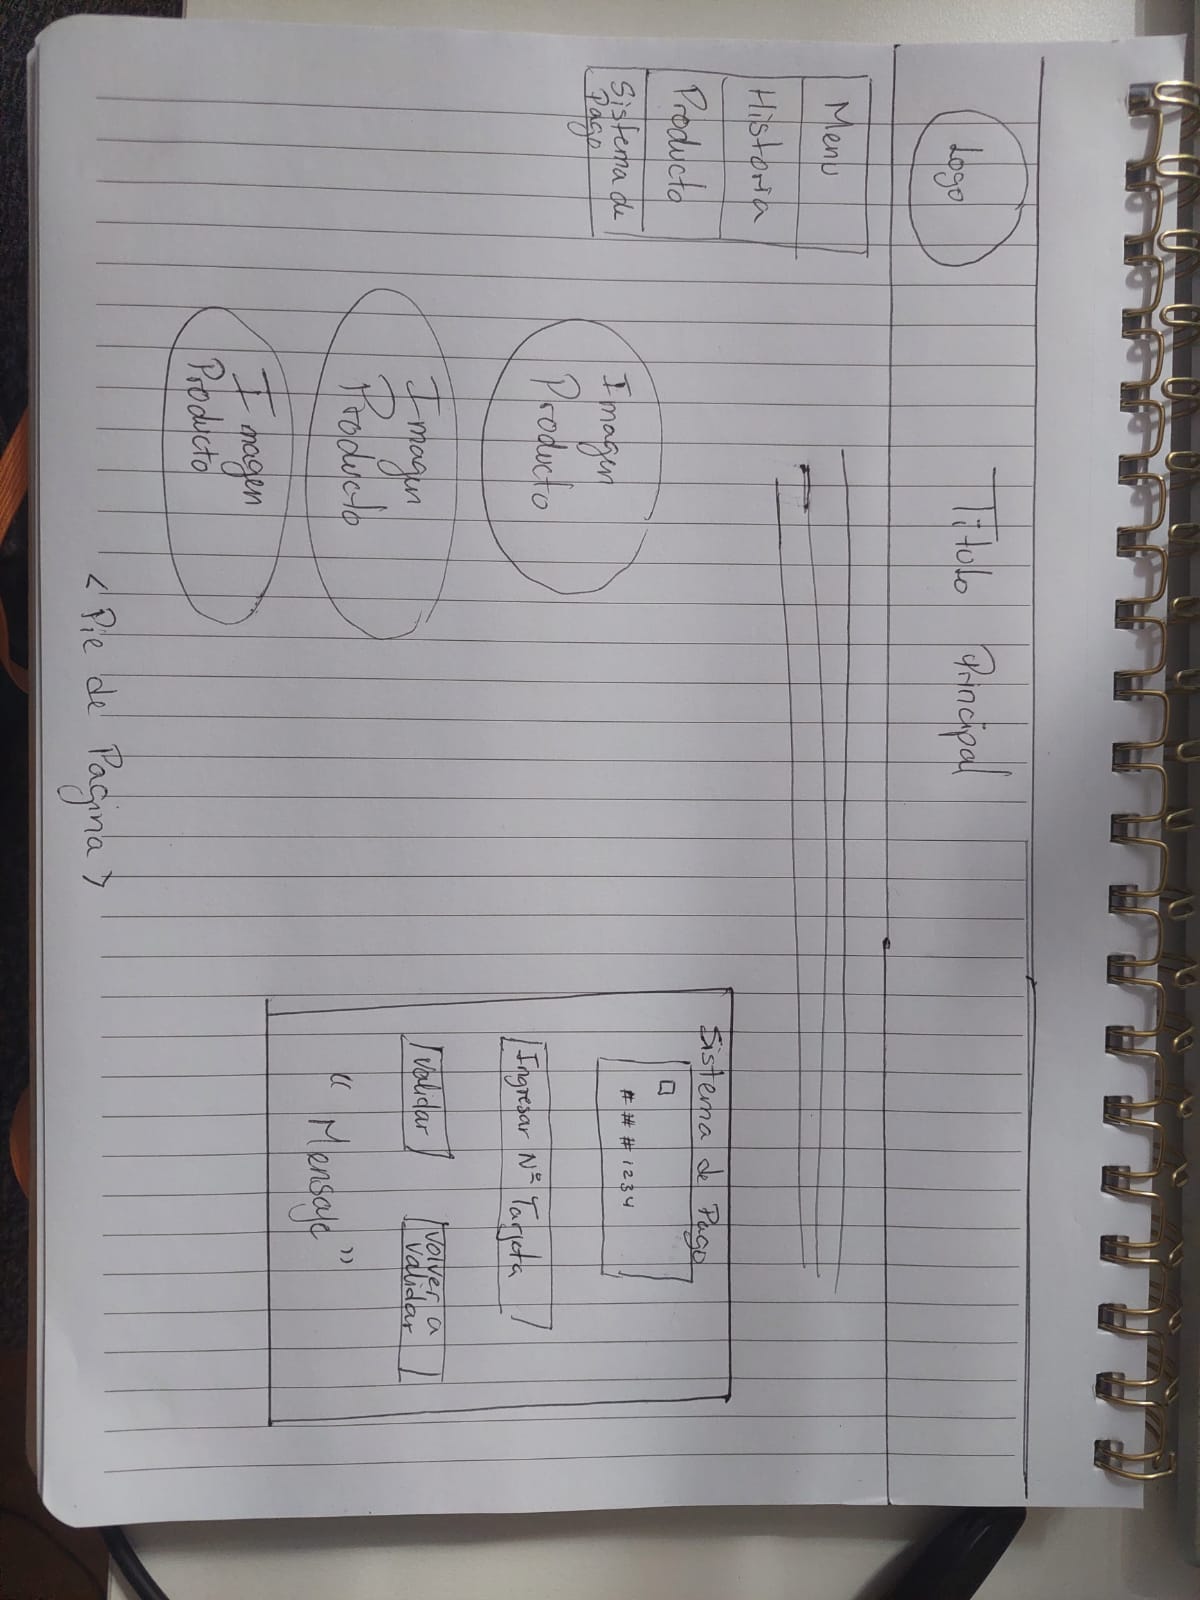 Logo
Titulo Principal
Menu
Historia
Producto
Sistema de
Pago
Imagen
Producto
Imagen
Producto
Imagen
Producto
Sistema de Pago
# # # 1234
Ingresar Nº Tarjeta
Validar
Volver a
Validar
" Mensaje "
< Pie de Pagina >